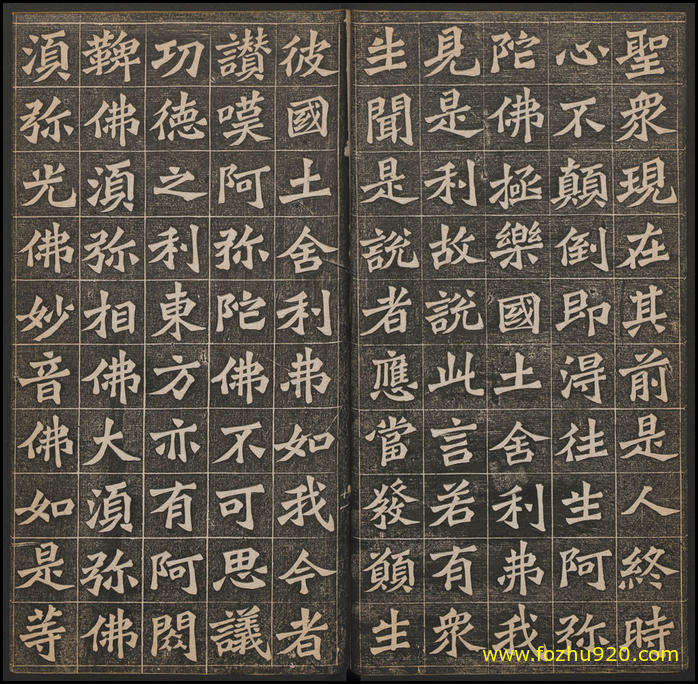 聖衆現在其前是人終時
心不顛倒即淂往生阿弥
陀佛極樂國土舍利弗我
見是利故說此言若有衆
生聞是說者應當發願生
彼國土舍利弗如我今者
讃嘆阿弥陀佛不可思議
功徳之利東方亦有阿閦
鞞佛湏弥相佛大湏弥佛
湏弥光佛妙音佛如是等
www.fozhu920.com